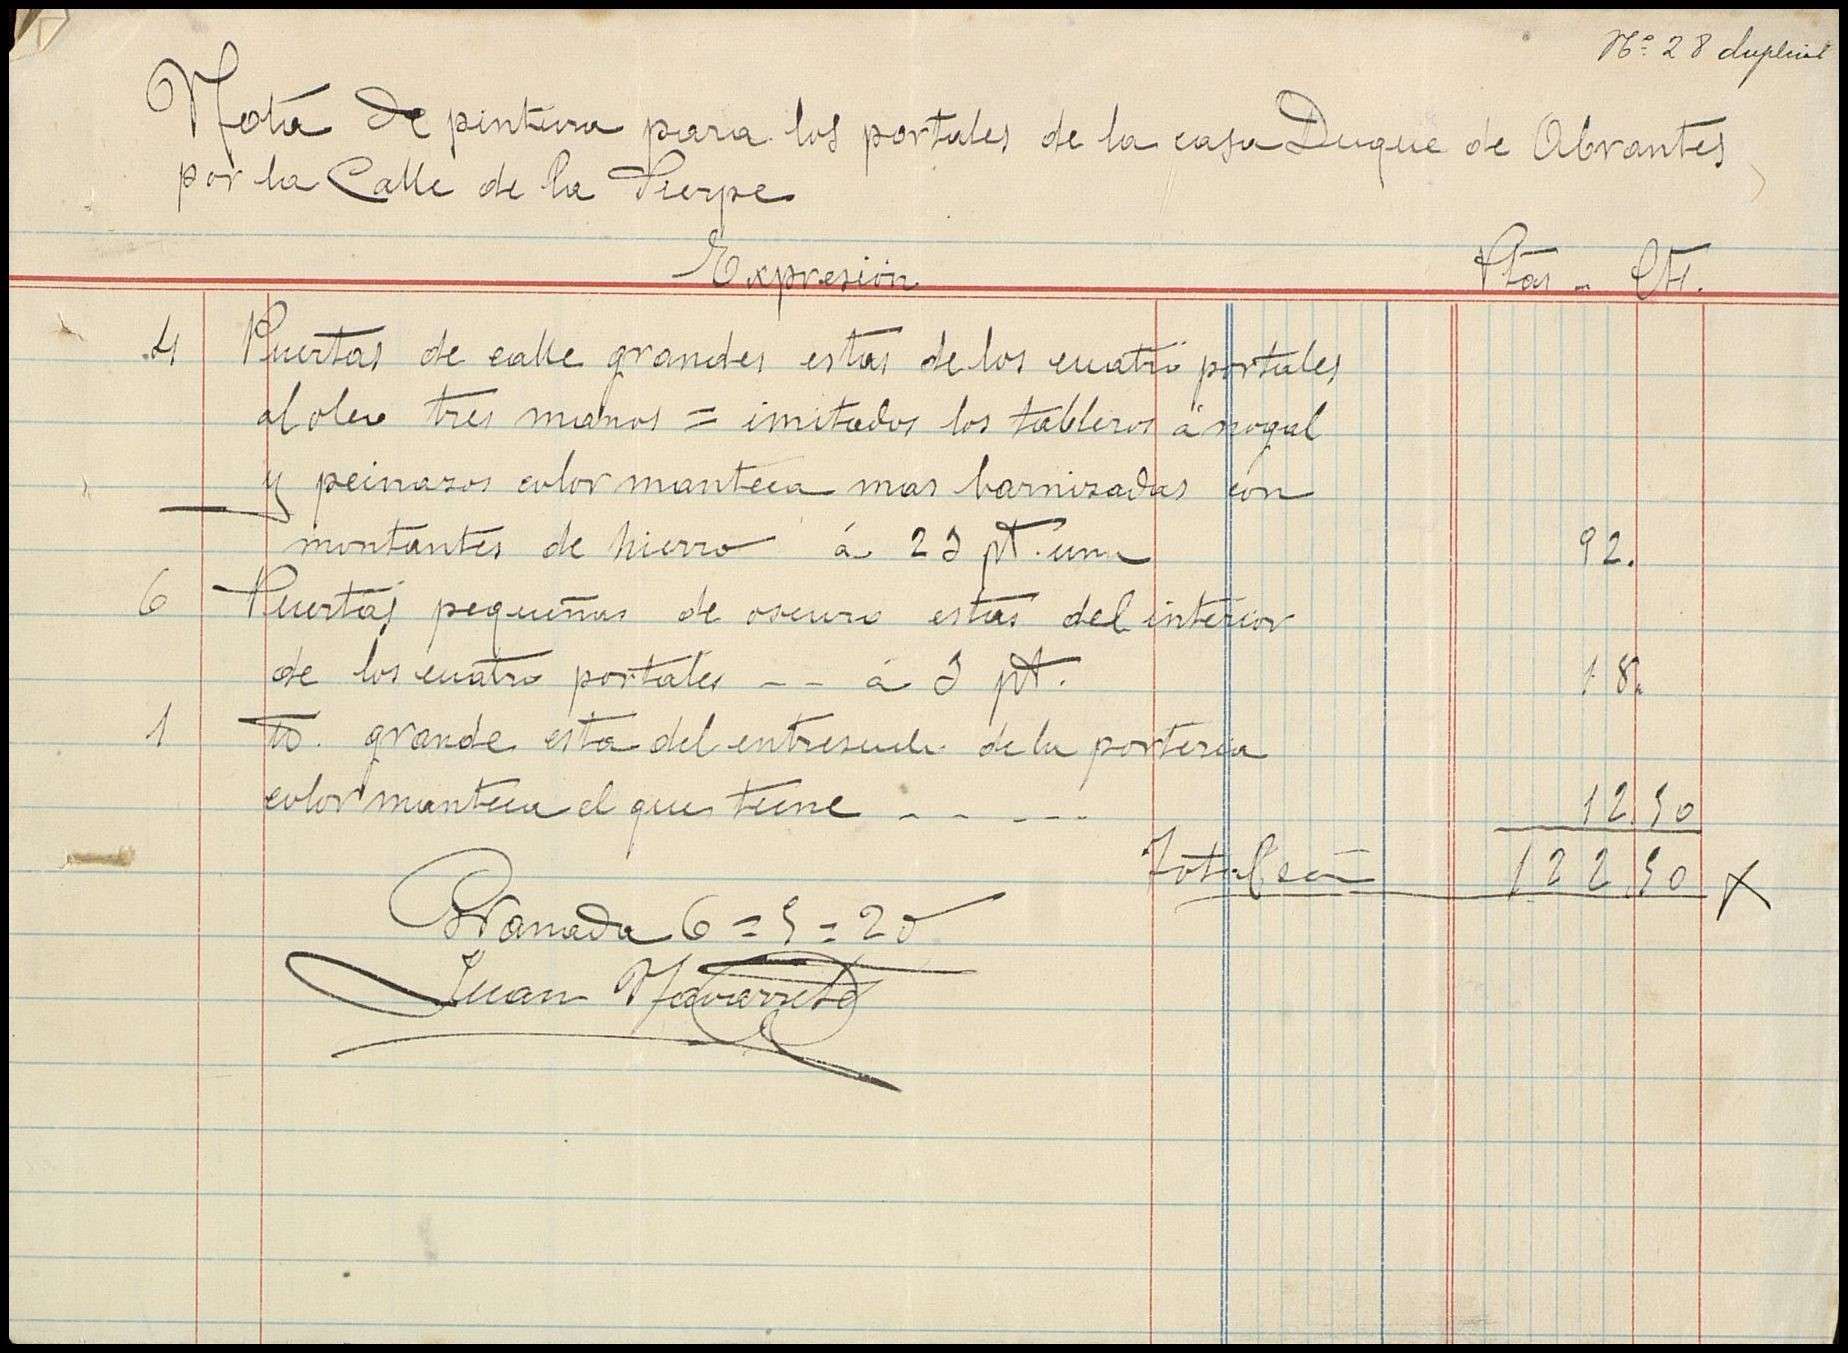 Nº 28 duplicd
Nota de pintura para los portales de la casa Duque de Abrantes
por la Calle de la Sierpe
Expresión Ptas - Cts.
4 Puertas de calle grandes estas de los cuatro portales
al oleo tres manos = imitados los tableros á nogal
y peinazos color manteca mas barnizadas con
montantes de hierro á 23 pt. una 92.
6 Puertas pequeñas de oscuro estas del interior
de los cuatro portales - - á 3 pt. 18.
1 ID. grande esta del entresuelo de la porteria
color manteca el que tiene - - - - - 12.50
Total 122.50
Granada 6 = 5 = 20
Juan Navarrete